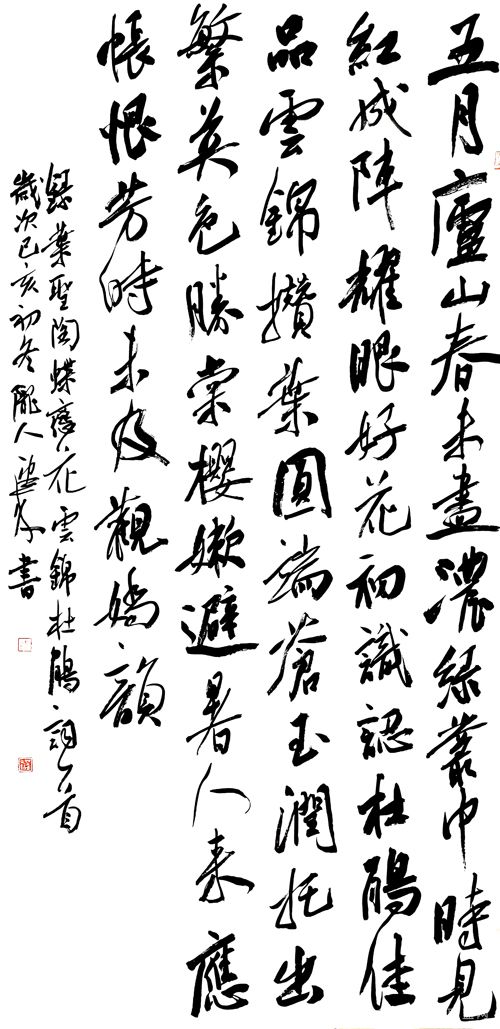 五月廬山春未盡濃綠叢中時見
紅成陣耀眼好花初識認杜鵑佳
品雲錦攢葉圓端蒼玉潤托出
繁英色勝棠櫻嫩避暑人來應
悵恨芳時未及觀嬌韻
錄葉聖陶蝶戀花雲錦杜鵑詞一首
歲次己亥初冬隴人書